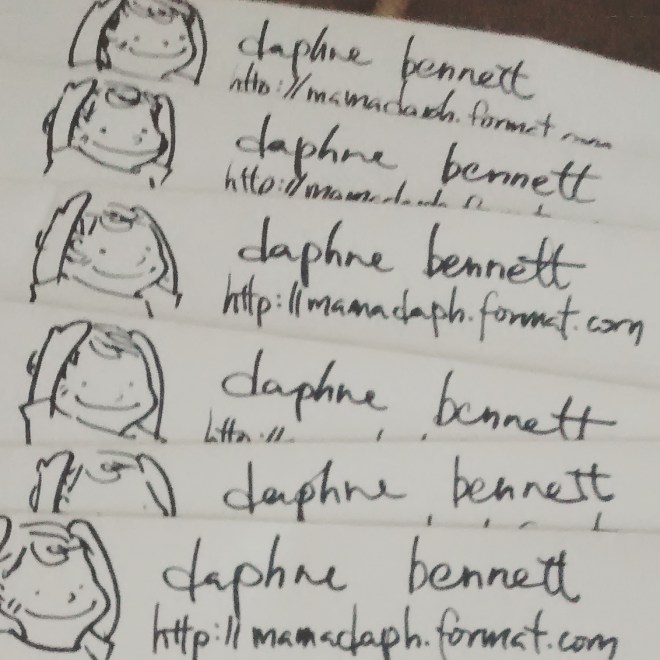 daphne bennett
http://mamadaph.format
daphne bennett
http://mama
daphne bennett
http://mamadaph.format.com
daphne bennett
http://
daphne bennett
daphne bennett
http://mamadaph.format.com